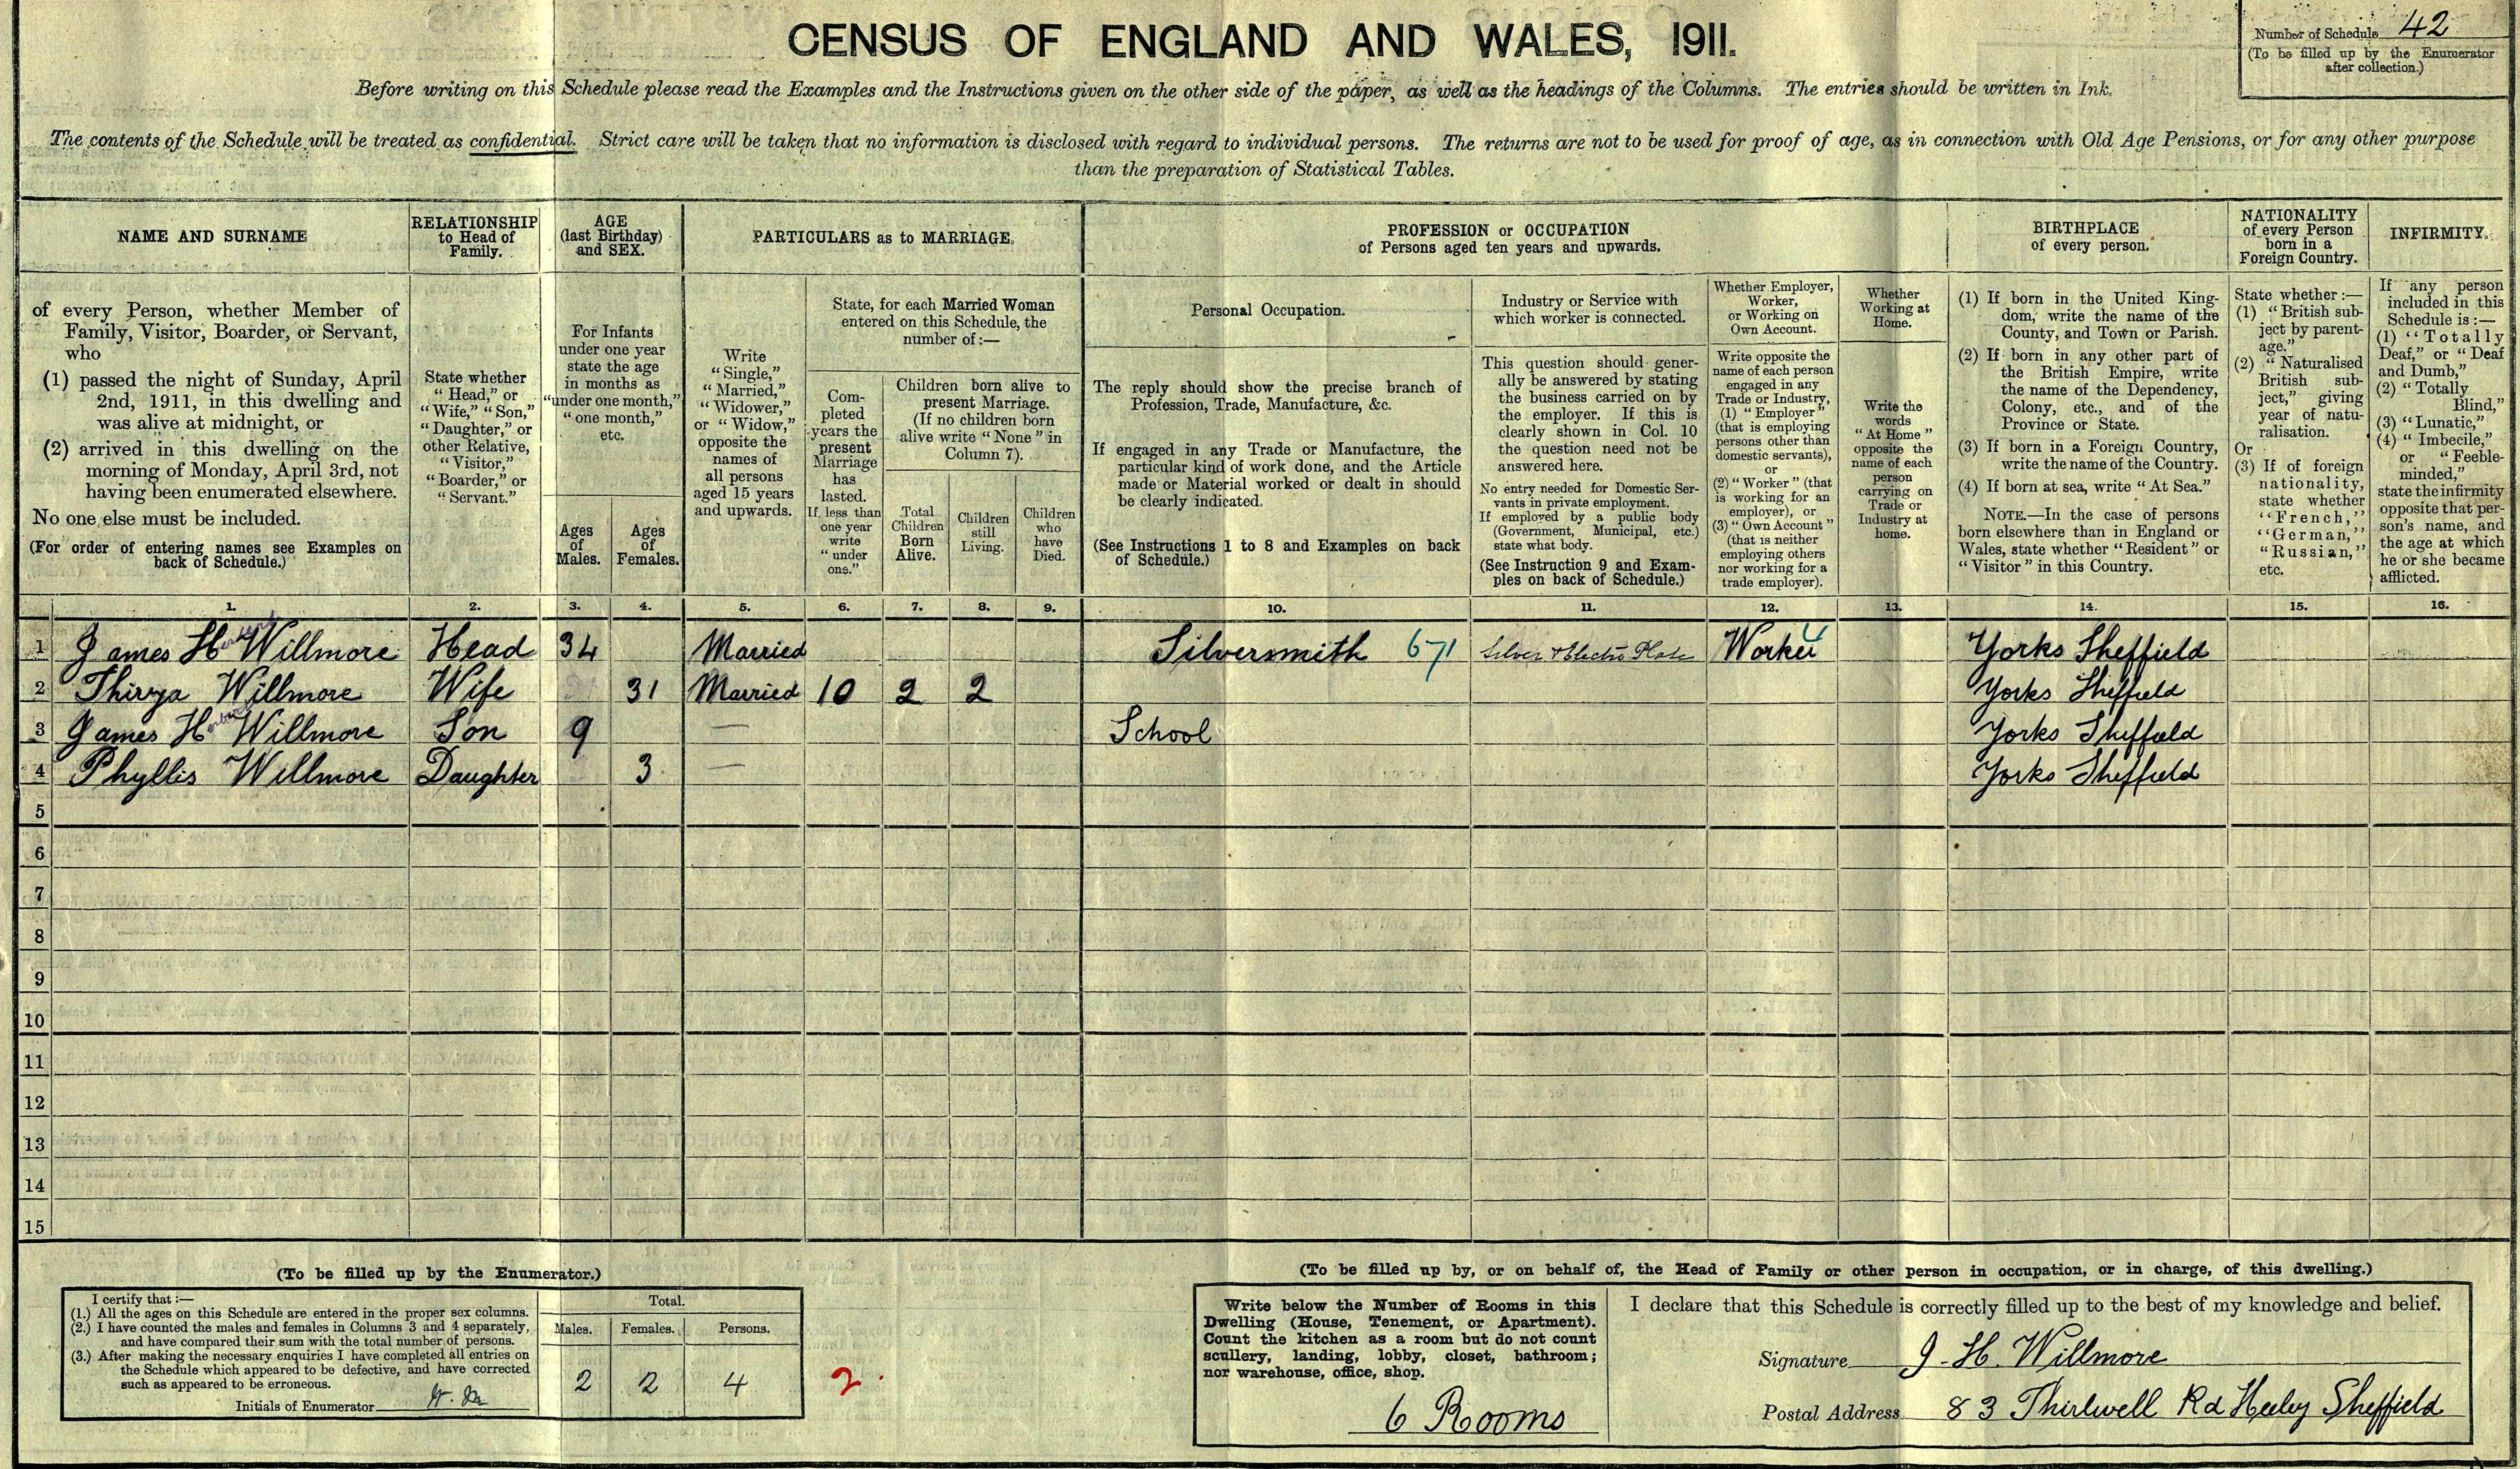 CENSUS OF ENGLAND AND WALES, 1911.
Number of Schedule 42
(To be filled up by the Enumerator
after collection.)
Before writing on this Schedule please read the Examples and the Instructions given on the other side of the paper, as well as the headings of the Columns. The entries should be written in Ink.
The contents of the Schedule will be treated as confidential. Strict care will be taken that no information is disclosed with regard to individual persons. The returns are not to be used for proof of age, as in connection with Old Age Pensions, or for any other purpose
than the preparation of Statistical Tables.
NAME AND SURNAME
of every Person, whether Member of
Family, Visitor, Boarder, or Servant,
who
(1) passed the night of Sunday, April
2nd, 1911, in this dwelling and
was alive at midnight, or
(2) arrived in this dwelling on the
morning of Monday, April 3rd, not
having been enumerated elsewhere.
No one else must be included.
(For order of entering names see Examples on
back of Schedule.)
RELATIONSHIP
to Head of
Family.
State whether
"Head," or
"Wife," "Son,"
"Daughter," or
other Relative,
"Visitor,"
"Boarder," or
"Servant."
AGE
(last Birthday)
and SEX.
For Infants
under one year
state the age
in months as
"under one month,"
"one month,"
etc.
Ages
of
Males.
Ages
of
Females.
PARTICULARS as to MARRIAGE.
Write
"Single,"
"Married,"
"Widower,"
or "Widow,"
opposite the
names of
all persons
aged 15 years
and upwards.
State, for each Married Woman
entered on this Schedule, the
number of:—
Com-
pleted
years the
present
Marriage
has
lasted.
If less than
one year
write
"under
one."
Children born alive to
present Marriage.
(If no children born
alive write "None" in
Column 7).
Total
Children
Born
Alive.
Children
still
Living.
Children
who
have
Died.
PROFESSION or OCCUPATION
of Persons aged ten years and upwards.
Personal Occupation.
The reply should show the precise branch of
Profession, Trade, Manufacture, &c.
If engaged in any Trade or Manufacture, the
particular kind of work done, and the Article
made or Material worked or dealt in should
be clearly indicated.
(See Instructions 1 to 8 and Examples on back
of Schedule.)
Industry or Service with
which worker is connected.
This question should gener-
ally be answered by stating
the business carried on by
the employer. If this is
clearly shown in Col. 10
the question need not be
answered here.
No entry needed for Domestic Ser-
vants in private employment.
If employed by a public body
(Government, Municipal, etc.)
state what body.
(See Instruction 9 and Exam-
ples on back of Schedule.)
Whether Employer,
Worker,
or Working on
Own Account.
Write opposite the
name of each person
engaged in any
Trade or Industry,
(1) "Employer"
(that is employing
persons other than
domestic servants),
or
(2) "Worker" (that
is working for an
employer), or
(3) "Own Account"
(that is neither
employing others
nor working for a
trade employer).
Whether
Working at
Home.
Write the
words
"At Home"
opposite the
name of each
person
carrying on
Trade or
Industry at
home.
BIRTHPLACE
of every person.
(1) If born in the United King-
dom, write the name of the
County, and Town or Parish.
(2) If born in any other part of
the British Empire, write
the name of the Dependency,
Colony, etc., and of the
Province or State.
(3) If born in a Foreign Country,
write the name of the Country.
(4) If born at sea, write "At Sea."
NOTE.—In the case of persons
born elsewhere than in England or
Wales, state whether "Resident" or
"Visitor" in this Country.
NATIONALITY
of every Person
born in a
Foreign Country.
State whether:—
(1) "British sub-
ject by parent-
age."
(2) "Naturalised
British sub-
ject," giving
year of natu-
ralisation.
Or
(3) If of foreign
nationality,
state whether
"French,"
"German,"
"Russian,"
etc.
INFIRMITY.
If any person
included in this
Schedule is:—
(1) "Totally
Deaf," or "Deaf
and Dumb,"
(2) "Totally
Blind,"
(3) "Lunatic,"
(4) "Imbecile,"
or "Feeble-
minded,"
state the infirmity
opposite that per-
son's name, and
the age at which
he or she became
afflicted.
1. 2. 3. 4. 5. 6. 7. 8. 9. 10. 11. 12. 13. 14. 15. 16.
1 James Herbert Willmore Head 34 Married Silversmith 671 Silver & Electro Plate Worker Yorks Sheffield
2 Thirza Willmore Wife 31 Married 10 2 2 Yorks Sheffield
3 James Herbert Willmore Son 9 — School Yorks Sheffield
4 Phyllis Willmore Daughter 3 — Yorks Sheffield
5
6
7
8
9
10
11
12
13
14
15
(To be filled up by the Enumerator.)
I certify that:—
(1.) All the ages on this Schedule are entered in the proper sex columns.
(2.) I have counted the males and females in Columns 3 and 4 separately,
and have compared their sum with the total number of persons.
(3.) After making the necessary enquiries I have completed all entries on
the Schedule which appeared to be defective, and have corrected
such as appeared to be erroneous.
Initials of Enumerator
Total.
Males. Females. Persons.
2 2 4
2.
(To be filled up by, or on behalf of, the Head of Family or other person in occupation, or in charge, of this dwelling.)
Write below the Number of Rooms in this
Dwelling (House, Tenement, or Apartment).
Count the kitchen as a room but do not count
scullery, landing, lobby, closet, bathroom;
nor warehouse, office, shop.
6 Rooms
I declare that this Schedule is correctly filled up to the best of my knowledge and belief.
Signature J. H. Willmore
Postal Address 83 Thirlwell Rd Heeley Sheffield